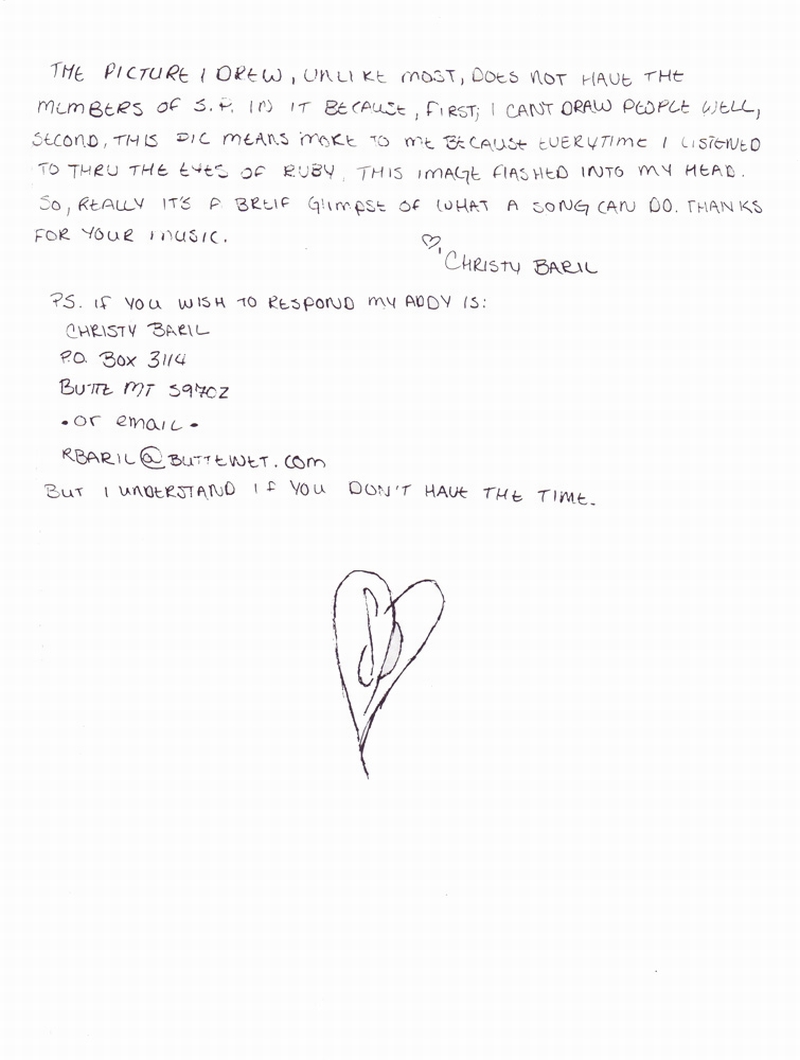 THE PICTURE I DREW, UNLIKE MOST, DOES NOT HAVE THE
MEMBERS OF S.P. IN IT BECAUSE, FIRST; I CANT DRAW PEOPLE WELL,
SECOND, THIS PIC MEANS MORE TO ME BECAUSE EVERYTIME I LISTENED
TO THRU THE EYES OF RUBY, THIS IMAGE FLASHED INTO MY HEAD.
SO, REALLY IT'S A BREIF GLIMPSE OF WHAT A SONG CAN DO. THANKS
FOR YOUR MUSIC.
♡, CHRISTY BARIL
P.S. IF YOU WISH TO RESPOND MY ADDY IS:
CHRISTY BARIL
P.O. BOX 3114
BUTTE MT 59702
• or email •
RBARIL@BUTTENET.COM
BUT I UNDERSTAND IF YOU DON'T HAVE THE TIME.